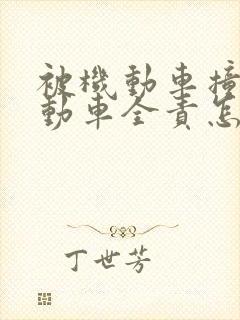 被機動車撞
動車全責怎
丁世芳